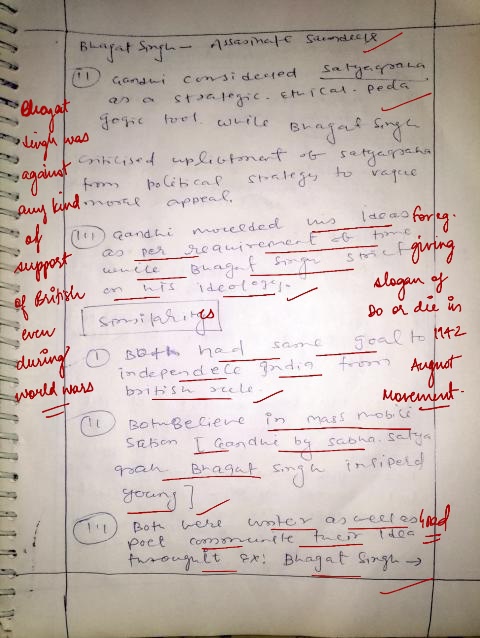 Bhagat Singh - Assasinate Saunders
(ii) Gandhi considered satyagraha
as a strategic. Ethical. peda
gogic tool. while Bhagat Singh
criticised of satyagraha
from political strategy to vague
moral appeal.
(iii) Gandhi moulded his ideas
as per requirement of time
while Bhagat Singh strict
on his ideology.
[Similarities]
(i) Both had same goal to
independece India from
british rule.
(ii) Both Believe in mass mobili
sation [Gandhi by satya
grah Bhagat Singh insiperd
young]
(iii) Both were writer as well as
poet communite their idea
throught Ex: Bhagat Singh →
Bhagat
Singh was
against
any kind
of
support
of British
even
during
world wars
for eg.
giving
slogan of
Do or die in
1942
August
Movement.
Good